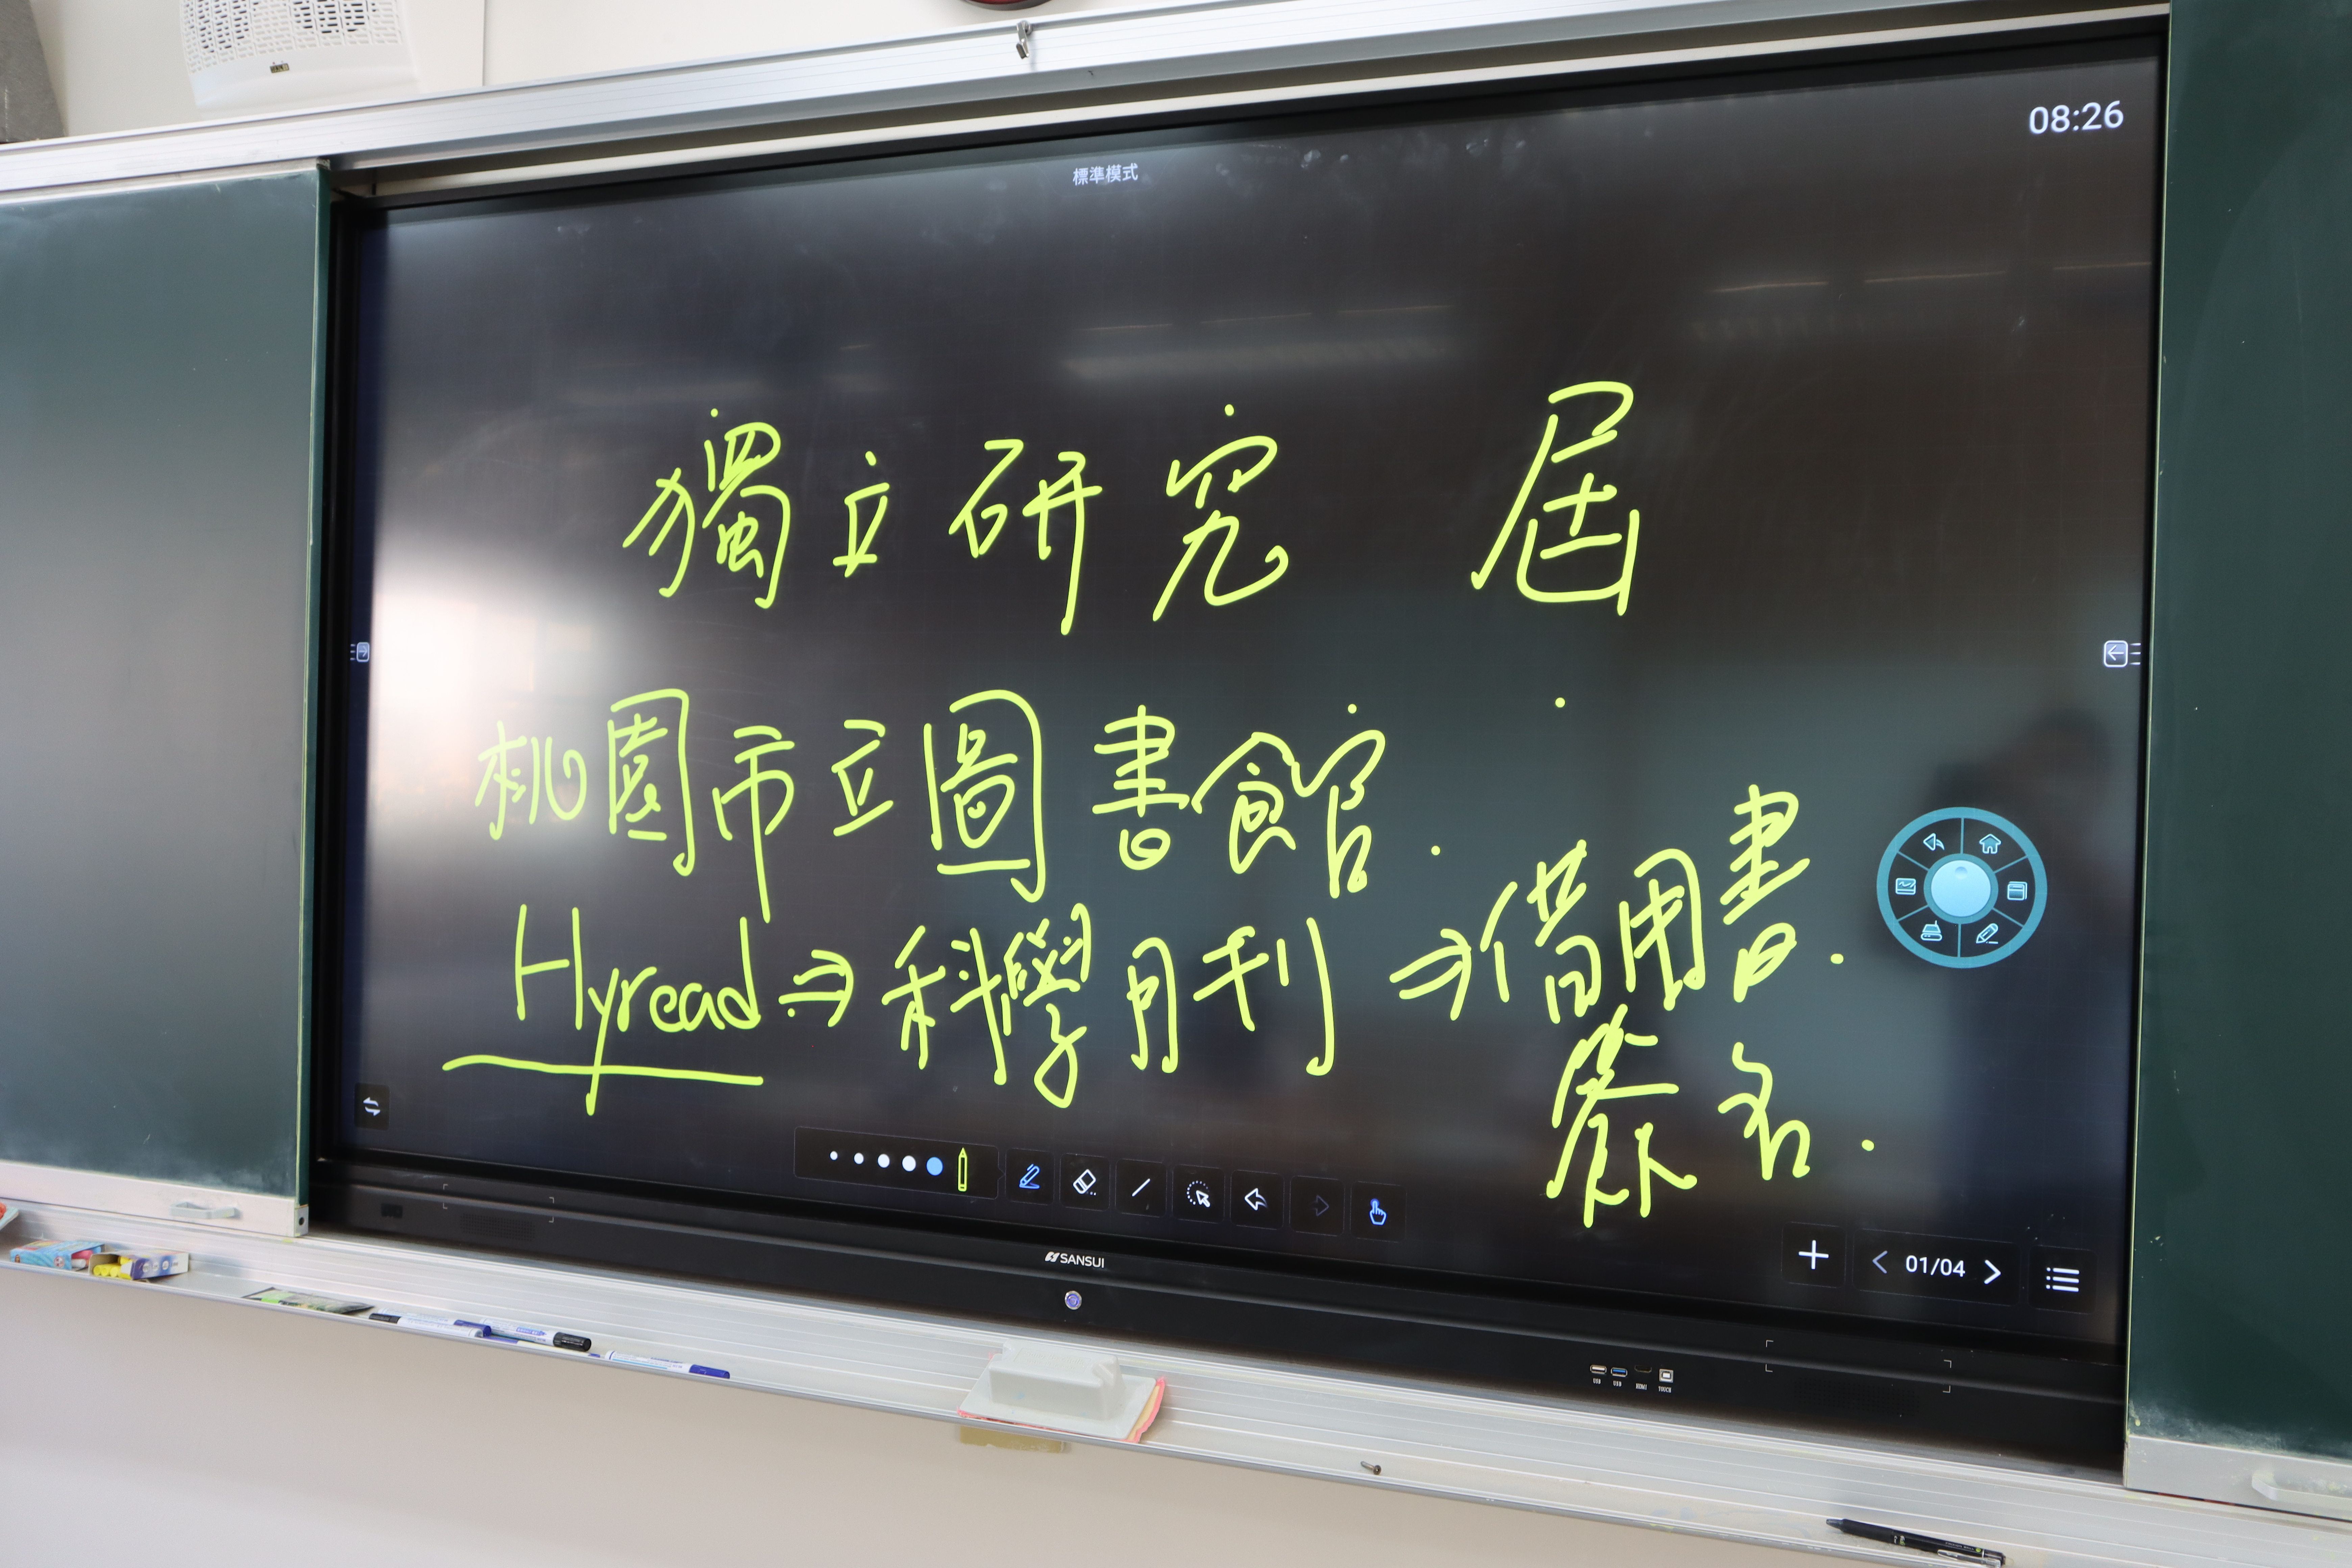 08:26
標準模式
獨立研究 屆
桃園市立圖書館.
Hyread ⇒ 科學月刊 ⇒ 借用書.
簽名.
SANSUI
01/04
USB USB HDMI TOUCH